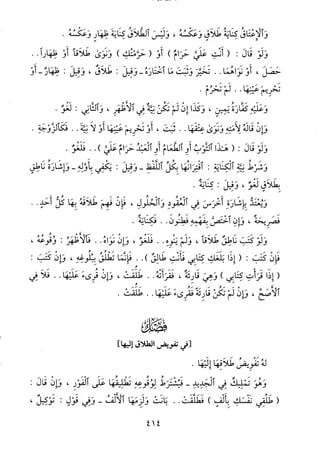 وَٱلْإِعْتَاقُ كِنَايَةُ طَلَاقٍ وَعَكْسُهُ ، وَلَيْسَ ٱلطَّلَاقُ كِنَايَةَ ظِهَارٍ وَعَكْسُهُ .
وَلَوْ قَالَ : ( أَنْتِ عَلَيَّ حَرَامٌ ) أَوْ ( حَرَّمْتُكِ ) وَنَوَىٰ طَلَاقاً أَوْ ظِهَاراً . .
حَصَلَ ، أَوْ نَوَاهُمَا . . تَخَيَّرَ وَثَبَتَ مَا ٱخْتَارَهُ - وَقِيلَ : طَلَاقٌ ، وَقِيلَ : ظِهَارٌ - أَوْ
تَحْرِيمَ عَيْنِهَا . . لَمْ تَحْرُمْ ،
وَعَلَيْهِ كَفَّارَةُ يَمِينٍ ، وَكَذَا إِنْ لَمْ تَكُنْ نِيَّةٌ فِي ٱلْأَظْهَرِ ، وَٱلثَّانِي : لَغْوٌ .
وَإِنْ قَالَهُ لِأَمَتِهِ وَنَوَىٰ عِتْقاً . . ثَبَتَ ، أَوْ تَحْرِيمَ عَيْنِهَا أَوْ لَا نِيَّةَ . . فَكَٱلزَّوْجَةِ .
وَلَوْ قَالَ : ( هَـٰذَا ٱلثَّوْبُ أَوِ ٱلطَّعَامُ أَوِ ٱلْعَبْدُ حَرَامٌ عَلَيَّ ) . . فَلَغْوٌ .
وَشَرْطُ نِيَّةِ ٱلْكِنَايَةِ : ٱقْتِرَانُهَا بِكُلِّ ٱللَّفْظِ - وَقِيلَ : يَكْفِي بِأَوَّلِهِ - وَإِشَارَةُ نَاطِقٍ
بِطَلَاقٍ لَغْوٌ ، وَقِيلَ : كِنَايَةٌ .
وَيُعْتَدُّ بِإِشَارَةِ أَخْرَسَ فِي ٱلْعُقُودِ وَٱلْحُلُولِ ، فَإِنْ فَهِمَ طَلَاقَهُ بِهَا كُلُّ أَحَدٍ . .
فَصَرِيحَةٌ ، وَإِنِ ٱخْتَصَّ بِفَهْمِهِ فَطِنُونَ . . فَكِنَايَةٌ .
وَلَوْ كَتَبَ نَاطِقٌ طَلَاقاً ، وَلَمْ يَنْوِهِ . . فَلَغْوٌ ، وَإِنْ نَوَاهُ . . فَٱلْأَظْهَرُ : وُقُوعُهُ ،
فَإِنْ كَتَبَ : ( إِذَا بَلَغَكِ كِتَابِي فَأَنْتِ طَالِقٌ ) . . فَإِنَّمَا تَطْلُقُ بِبُلُوغِهِ ، وَإِنْ كَتَبَ :
( إِذَا قَرَأْتِ كِتَابِي ) وَهِيَ قَارِئَةٌ ، فَقَرَأَتْهُ . . طَلَقَتْ ، وَإِنْ قُرِىءَ عَلَيْهَا . . فَلَا فِي
ٱلْأَصَحِّ ، وَإِنْ لَمْ تَكُنْ قَارِئَةً فَقُرِىءَ عَلَيْهَا . . طَلَقَتْ .
فَصْلٌ
[ في تفويض الطلاق إليها ]
لَهُ تَفْوِيضُ طَلَاقِهَا إِلَيْهَا .
وَهُوَ تَمْلِيكٌ فِي ٱلْجَدِيدِ - فَيُشْتَرَطُ لِوُقُوعِهِ تَطْلِيقُهَا عَلَى ٱلْفَوْرِ ، وَإِنْ قَالَ :
( طَلِّقِي نَفْسَكِ بِأَلْفٍ ) فَطَلَّقَتْ . . بَانَتْ وَلَزِمَهَا ٱلْأَلْفُ - وَفِي قَوْلٍ : تَوْكِيلٌ ،
٤١٤